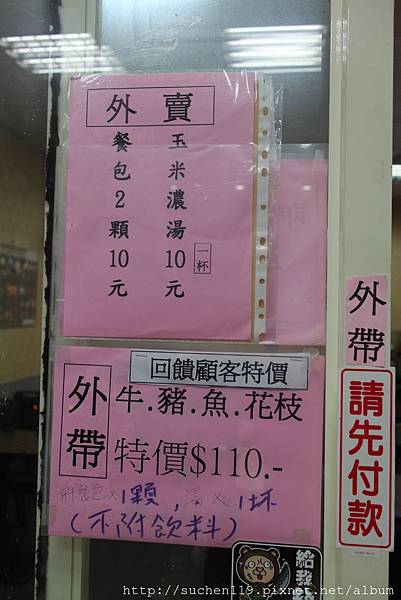 外賣
玉米濃湯10元
一杯
餐包2顆10元
回饋顧客特價
外帶
牛.豬.魚.花枝
特價$110.-
附餐包x1顆,湯x1杯
(不附飲料)
外帶
請先付款
http://suchen119.pixnet.net/album